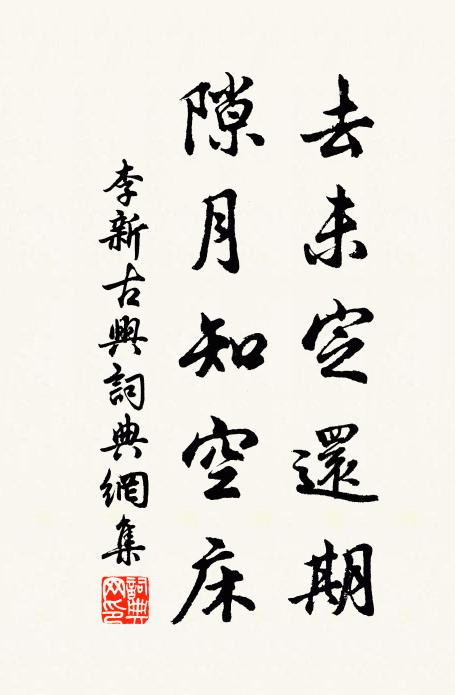 去未定還期
隙月知空床
李新古興詞典網集
詞典网印